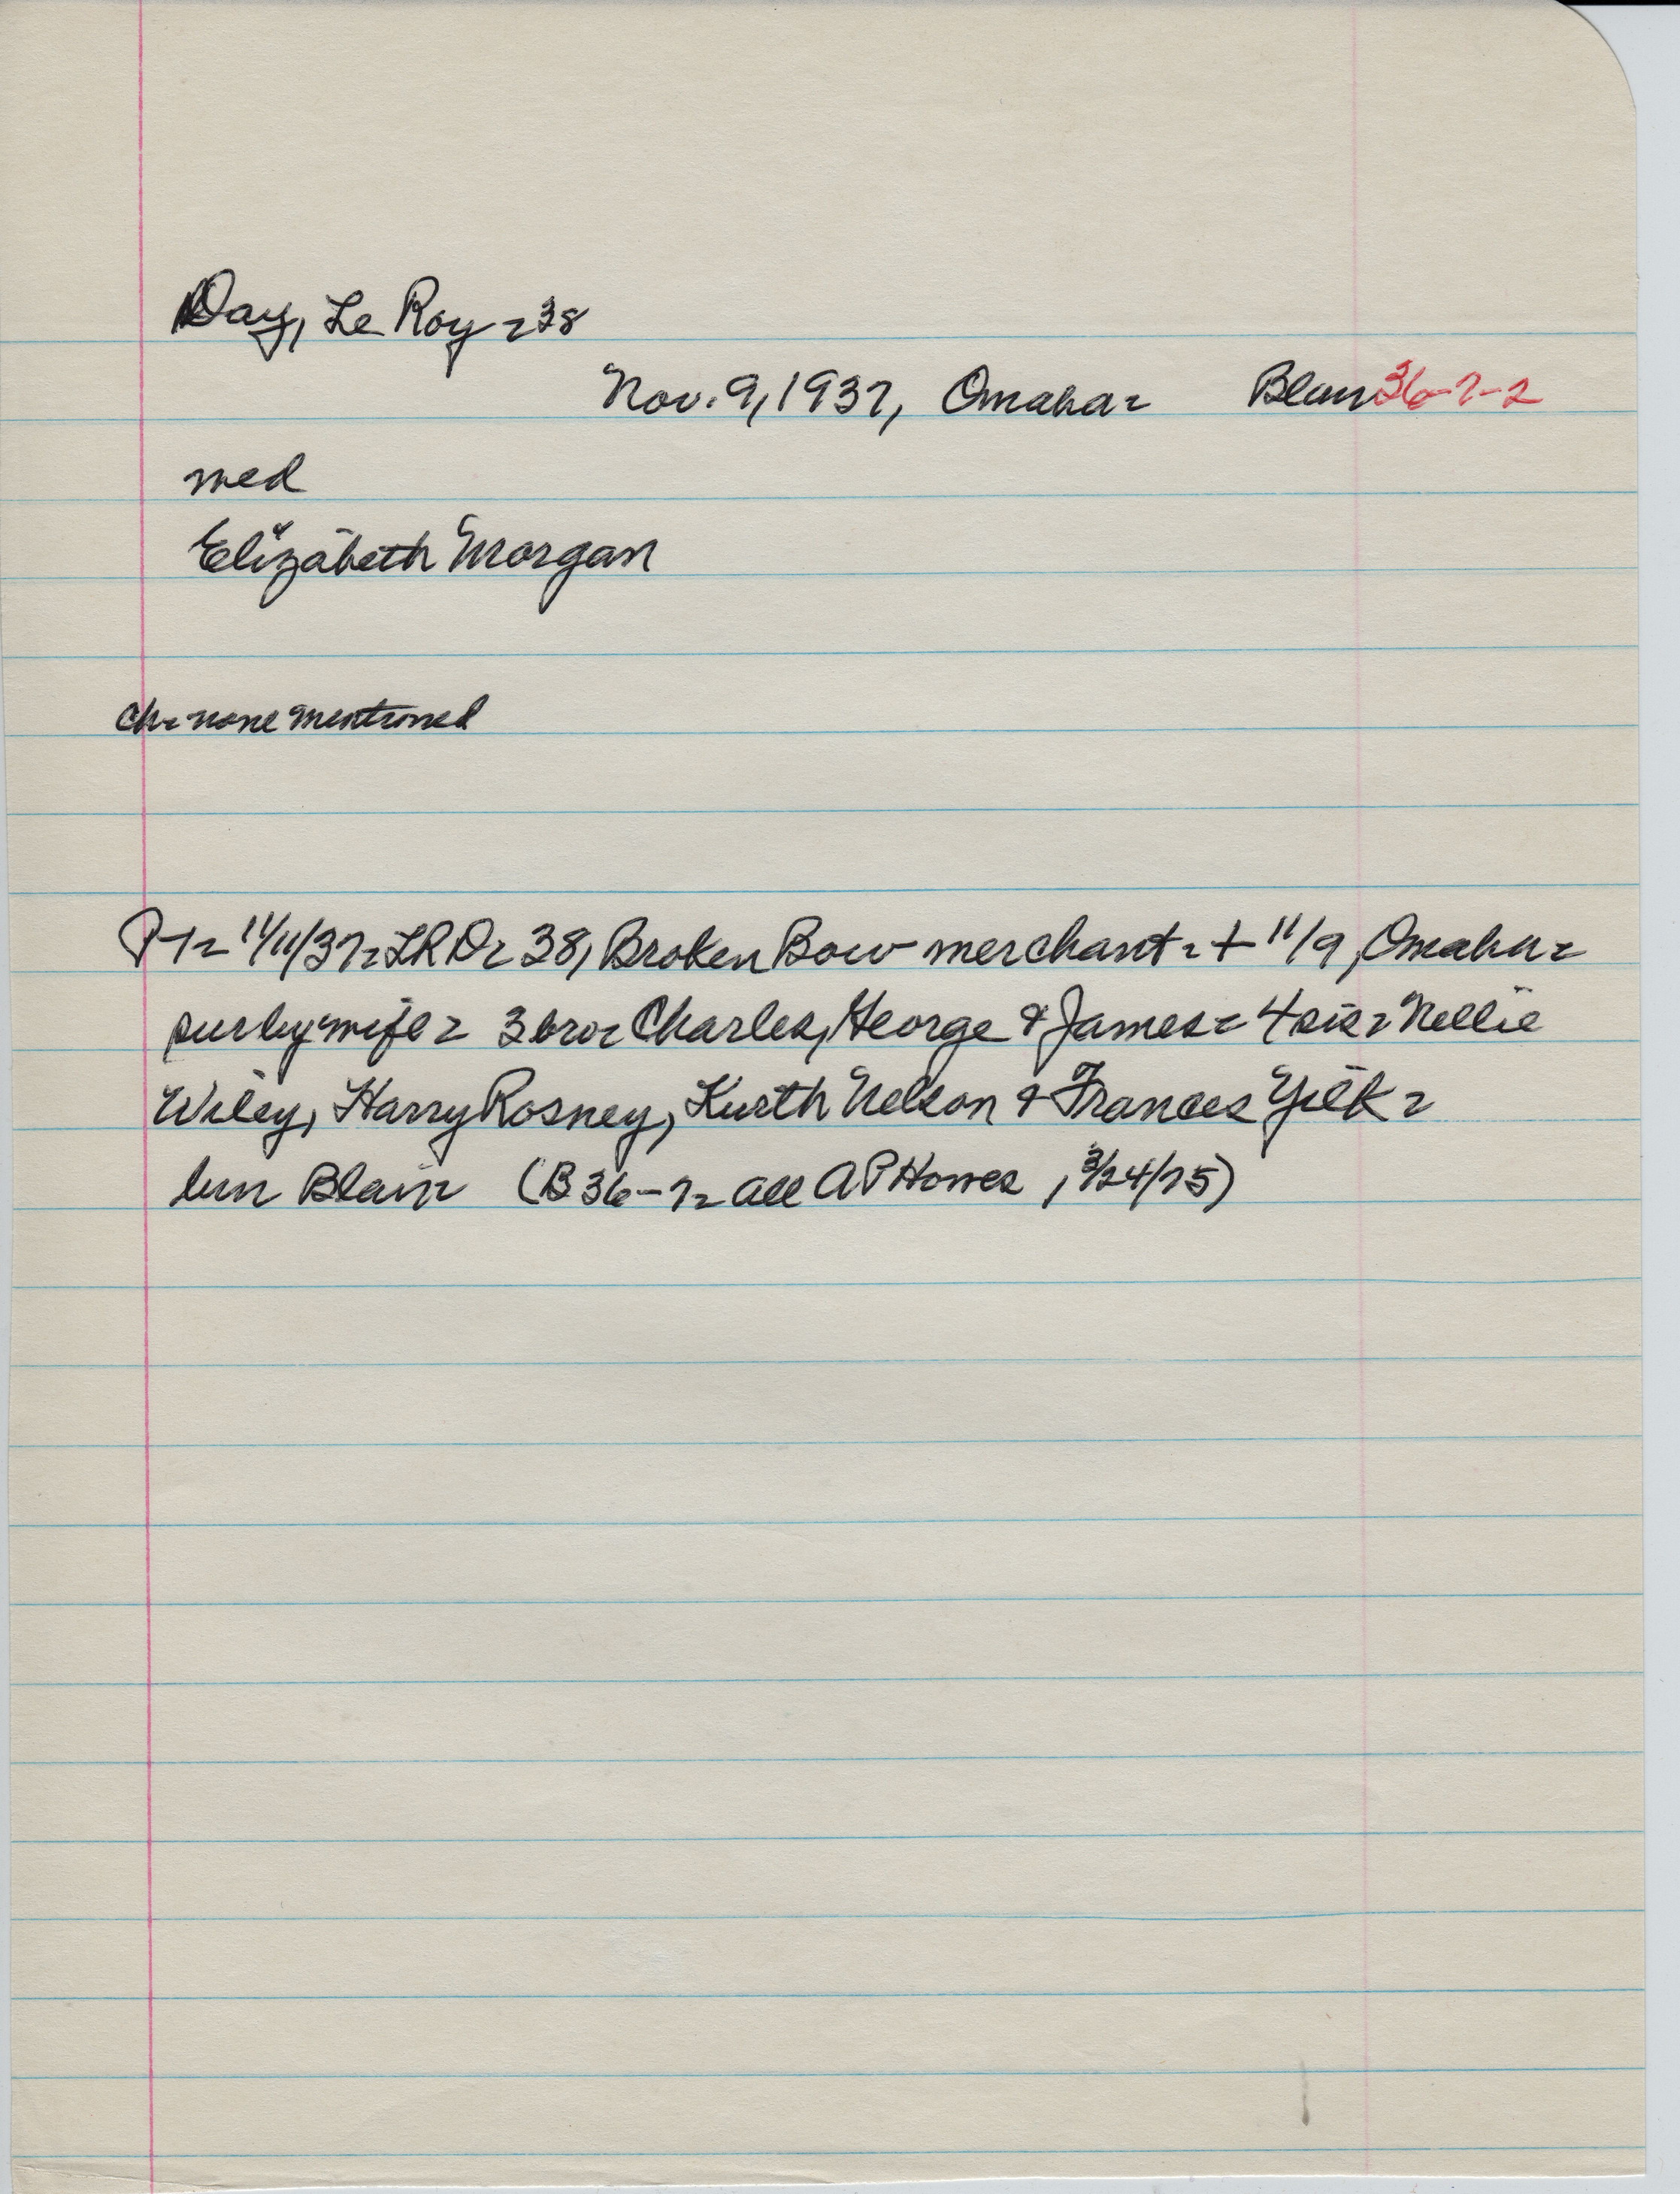 Day, Le Roy = 38
Nov. 9, 1937, Omaha = Blair 36-7-2
med
Elizabeth Morgan
Ch = none mentioned
P-T = 11/11/37 = LRD = 38, Broken Bow merchant = + 11/9, Omaha =
sur by wife = 3 bro = Charles, George & James = 4 sis = Nellie
Wiley, Harry Rosney, Kurth Nelson & Frances Yilk =
bur Blair (B36-7 = all AP Howes, 3/24/75)